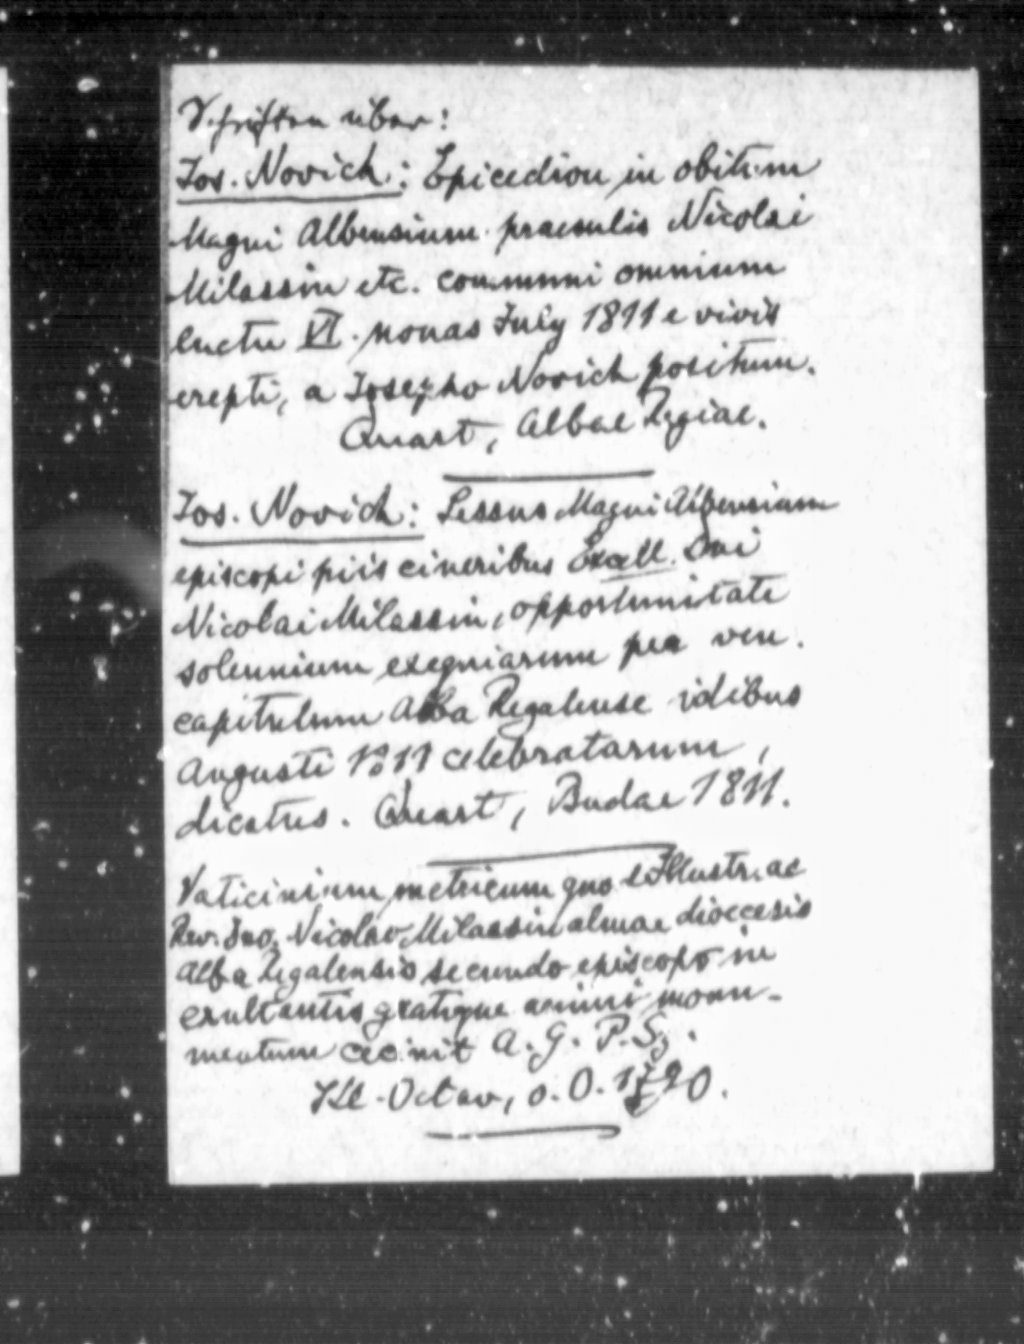 Schriften über:
Jos. Novich: Epicedion in obitum
Magni Albensium praesulis Nicolai
Milassin etc. communi omnium
luctu VI. nonas July 1811 e vivis
erepti, a Josepho Novich positum.
Quart, Albae Regiae.
Jos. Novich: Lessus Magni Albensium
episcopi piis cineribus Excell. Dni
Nicolai Milassin, opportunitate
solennium exequiarum per ven.
capitulum Alba Regalense idibus
Augusti 1811 celebratarum,
dicatus. Quart, Budae 1811.
Vaticinium metricum quo Illustr. ac
Rev. Dno. Nicolao Milassin almae dioecesis
Alba Regalensis secundo episcopo in
exultantis gratique animi monu-
mentum cecinit A. G. P. Sz.
Kl. Octav, o. O. 1790.